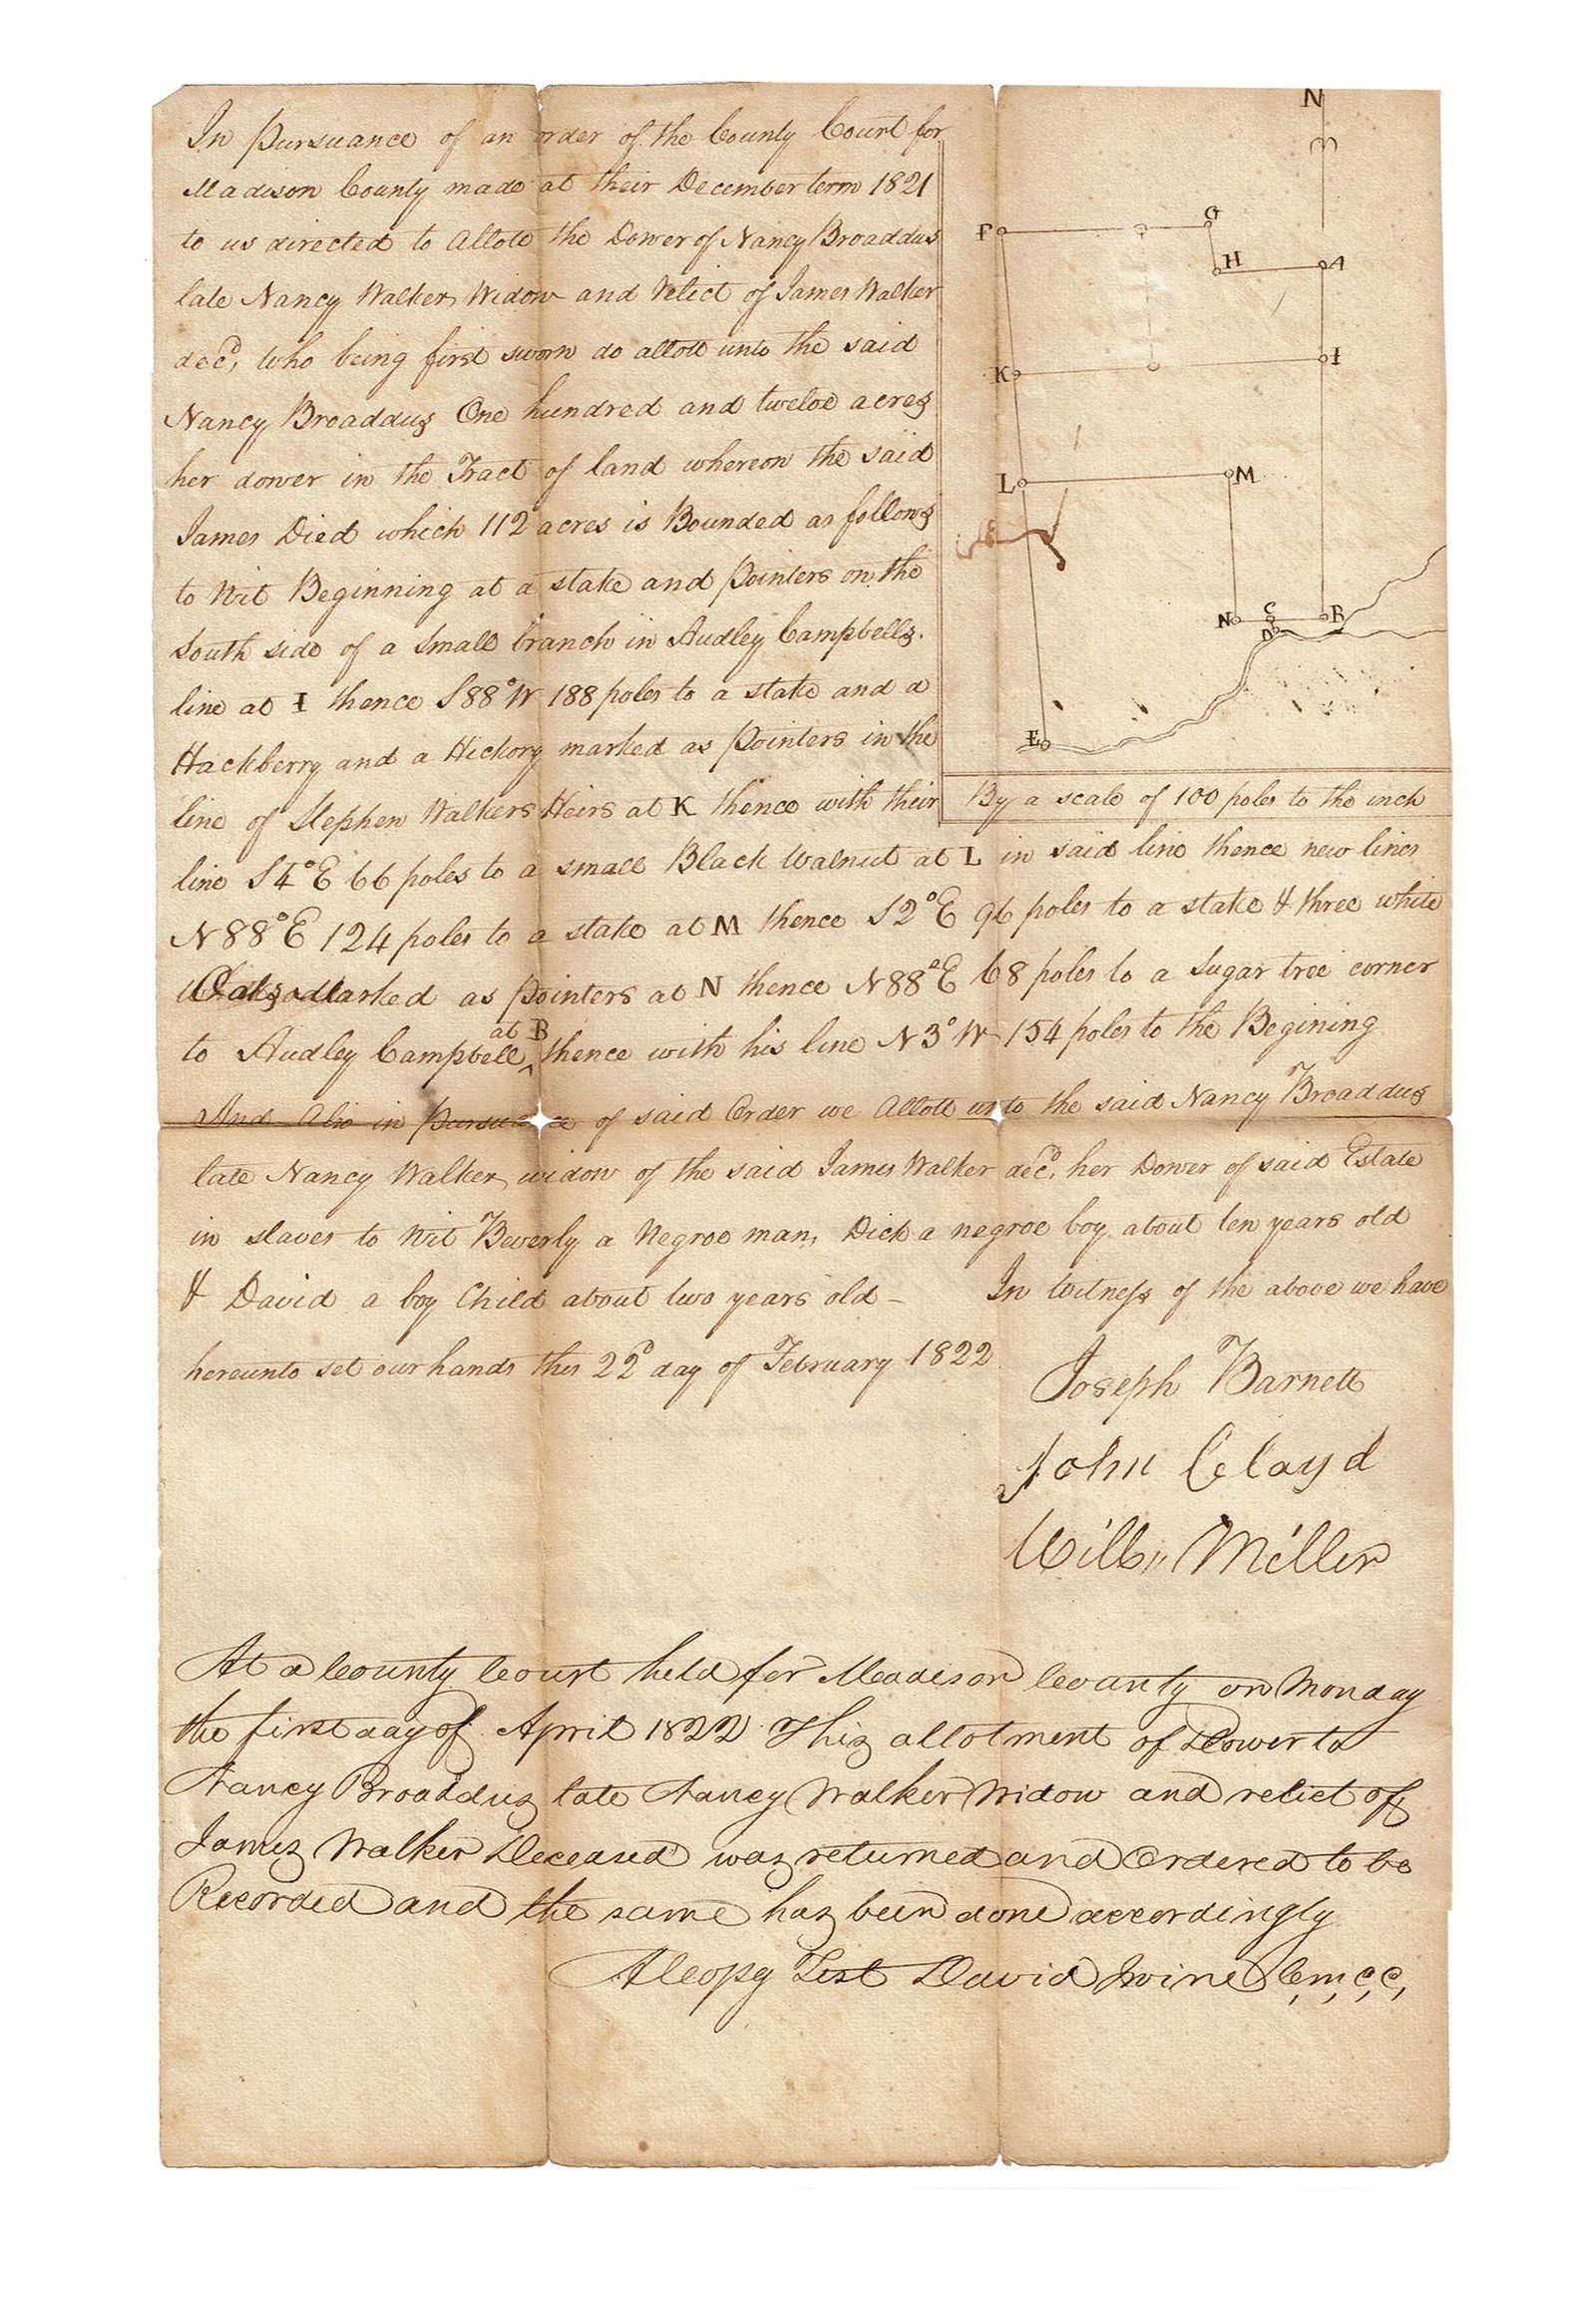 In Pursuance of an order of the County Court for
Madison County made at their December term 1821
to us directed to Allott the Dower of Nancy Broaddus
late Nancy Walker, Widow and Relict of James Walker
decd, who being first sworn do allott unto the said
Nancy Broaddus One hundred and twelve acres
her dower in the Tract of land whereon the said
James Died which 112 acres is Bounded as follows
to Wit Beginning at a stake and Pointers on the
South side of a small branch in Audley Campbells.
line at I thence S88°W 188 poles to a stake and a
Hackberry and a Hickory marked as Pointers in the
line of Stephen Walkers Heirs at K thence with their
line S4°E 66 poles to a small Black Walnut at L in said line thence new lines
N88°E 124 poles to a stake at M thence S2°E 96 poles to a stake & three white
Oaks marked as pointers at N thence N88°E 68 poles to a Sugar tree corner
to Audley Campbell, at B thence with his line N3°W 154 poles to the Begining
And Also in Pursuance of said Order we Allott unto the said Nancy Broaddus
late Nancy Walker, widow of the said James Walker decd, her Dower of said Estate
in slaves to Wit Beverly a Negroe man, Dick a negroe boy about ten years old
& David a boy Child about two years old – In witness of the above we have
hereunto set our hands this 22d day of February 1822
Joseph Barnett
John Cloyd
Will: Miller
At a County Court held for Madison County on Monday
the first day of April 1822 This allotment of Dower to
Nancy Broaddus late Nancy Walker Widow and relict of
James Walker Deceased was returned and Ordered to be
Recorded and the same has been done accordingly
A Copy Test David Irvine C, m, c, c,
N
F
G
H
A
K
I
L
M
N
C
B
D
E
By a scale of 100 poles to the inch